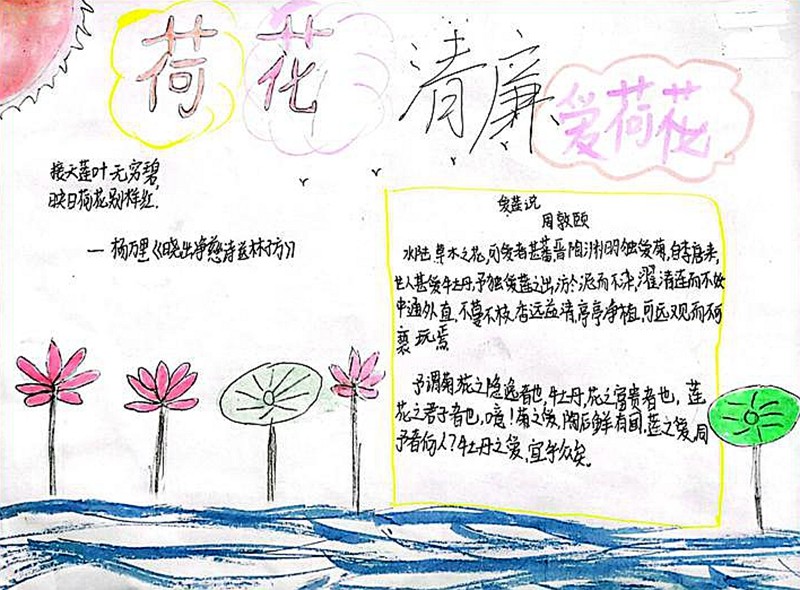 荷花 清廉 爱荷花
接天莲叶无穷碧,
映日荷花别样红.
— 杨万里《晓出净慈诗送林子方》
爱莲说
周敦颐
水陆草木之花,可爱者甚蕃晋陶渊明独爱菊,自李唐来,
世人甚爱牡丹,予独爱莲之出淤於泥而不染,濯清涟而不妖
中通外直,不蔓不枝,香远益清,亭亭净植,可远观而不可
亵玩焉
予谓菊花之隐逸者也,牡丹,花之富贵者也,莲
花之君子者也,噫!菊之爱,陶后鲜有闻,莲之爱,同
予者何人?牡丹之爱,宜乎众矣。